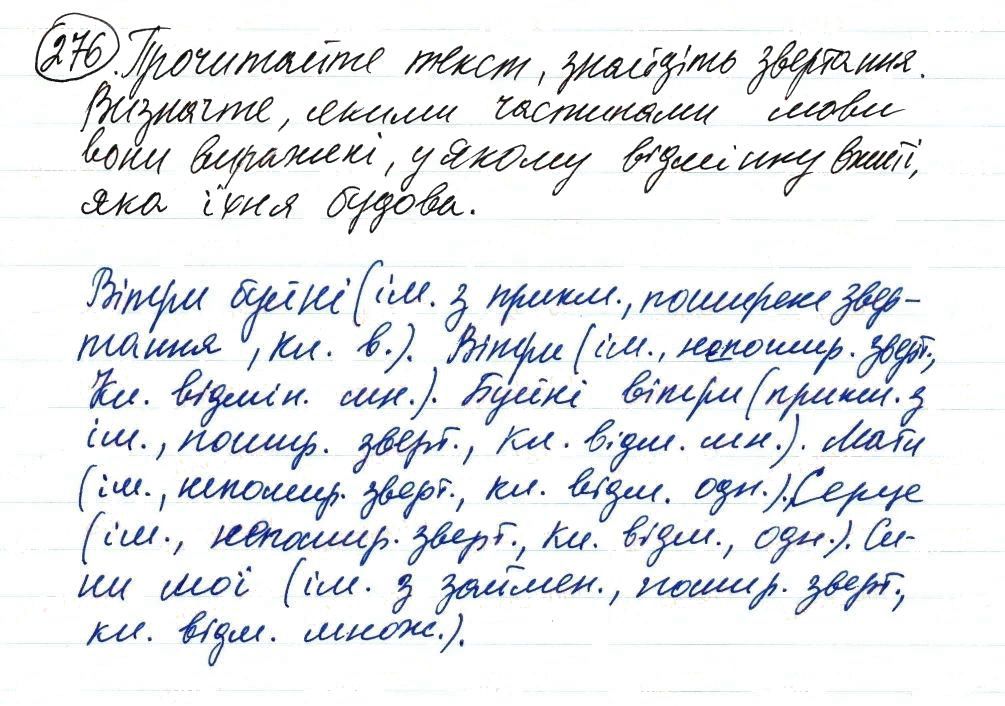 276. Прочитайте текст, знайдіть звертання.
Визначте, якими частинами мови
вони виражені, у якому відмінку вжиті,
яка їхня будова.
Вітри буйні (ім. з прикм., поширене звер-
тання, кл. в.). Вітри (ім., непошир. зверт.,
Кл. відмін. мн.). Буйні вітри (прикм. з
ім., пошир. зверт., кл. відм. мн.). Мати
(ім., непошир. зверт., кл. відм. одн.). Серце
(ім., непошир. зверт., кл. відм., одн.). Си-
ни мої (ім. з займен., пошир. зверт.,
кл. відм. множ.).